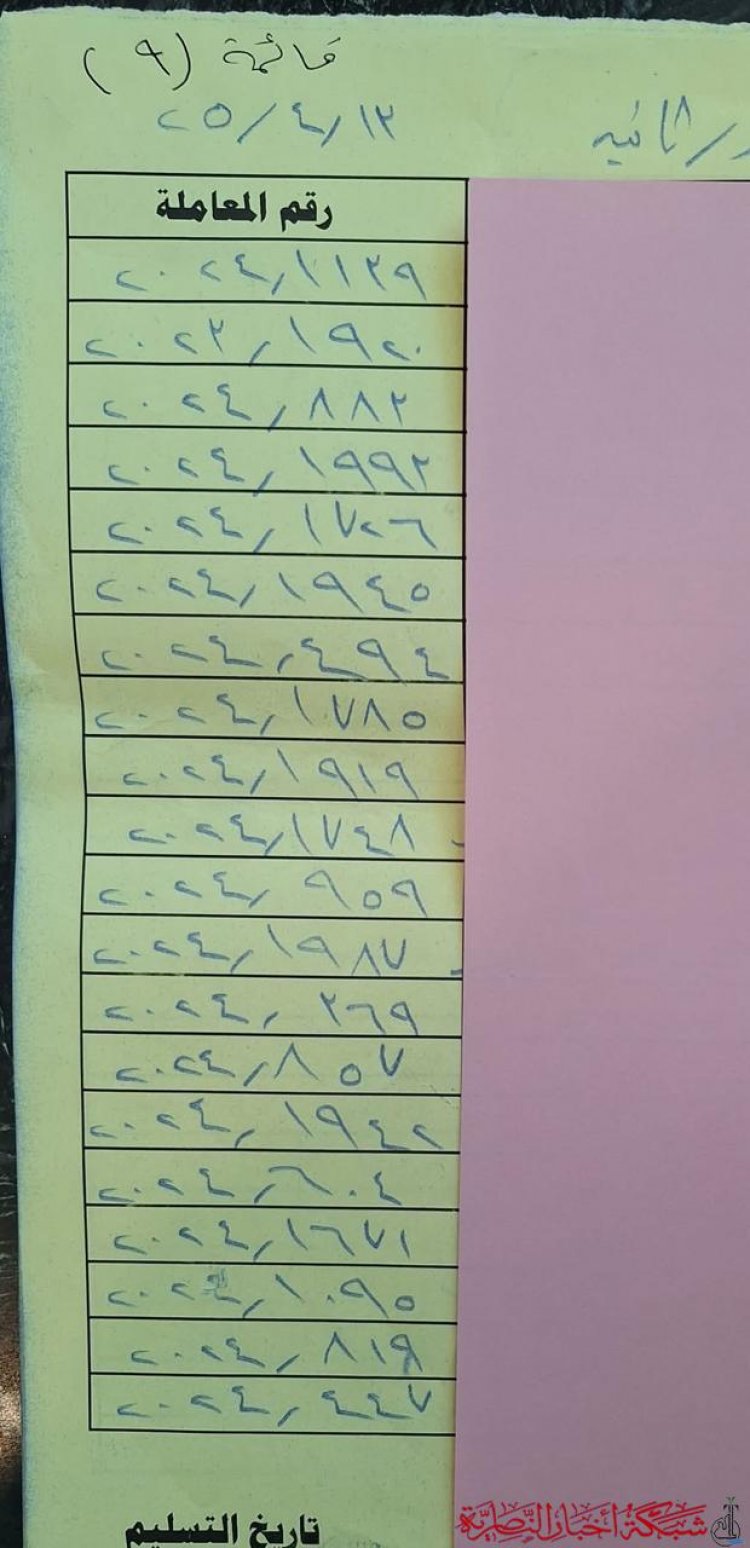 قائمة (٩)
ثانيه
٢٥/٤/١٣
رقم المعاملة
٢٠٢٤/١١٣٩
٢٠٢٣/١٩٢٠
٢٠٢٤/٨٨٣
٢٠٢٤/١٩٩٣
٢٠٢٤/١٧٢٦
٢٠٢٤/١٩٤٥
٢٠٢٤/٤٩٤
٢٠٢٤/١٧٨٥
٢٠٢٤/١٩١٩
٢٠٢٤/١٧٤٨
٢٠٢٤/٩٥٩
٢٠٢٤/١٩٨٧
٢٠٢٤/٣٦٩
٢٠٢٤/٨٥٧
٢٠٢٤/١٩٤٢
٢٠٢٤/٦٠٤
٢٠٢٤/١٦٧١
٢٠٢٤/١٠٩٥
٢٠٢٤/٨١٩
٢٠٢٤/٤٤٧
تاريخ التسليم
شبكة أخبار الناصرية